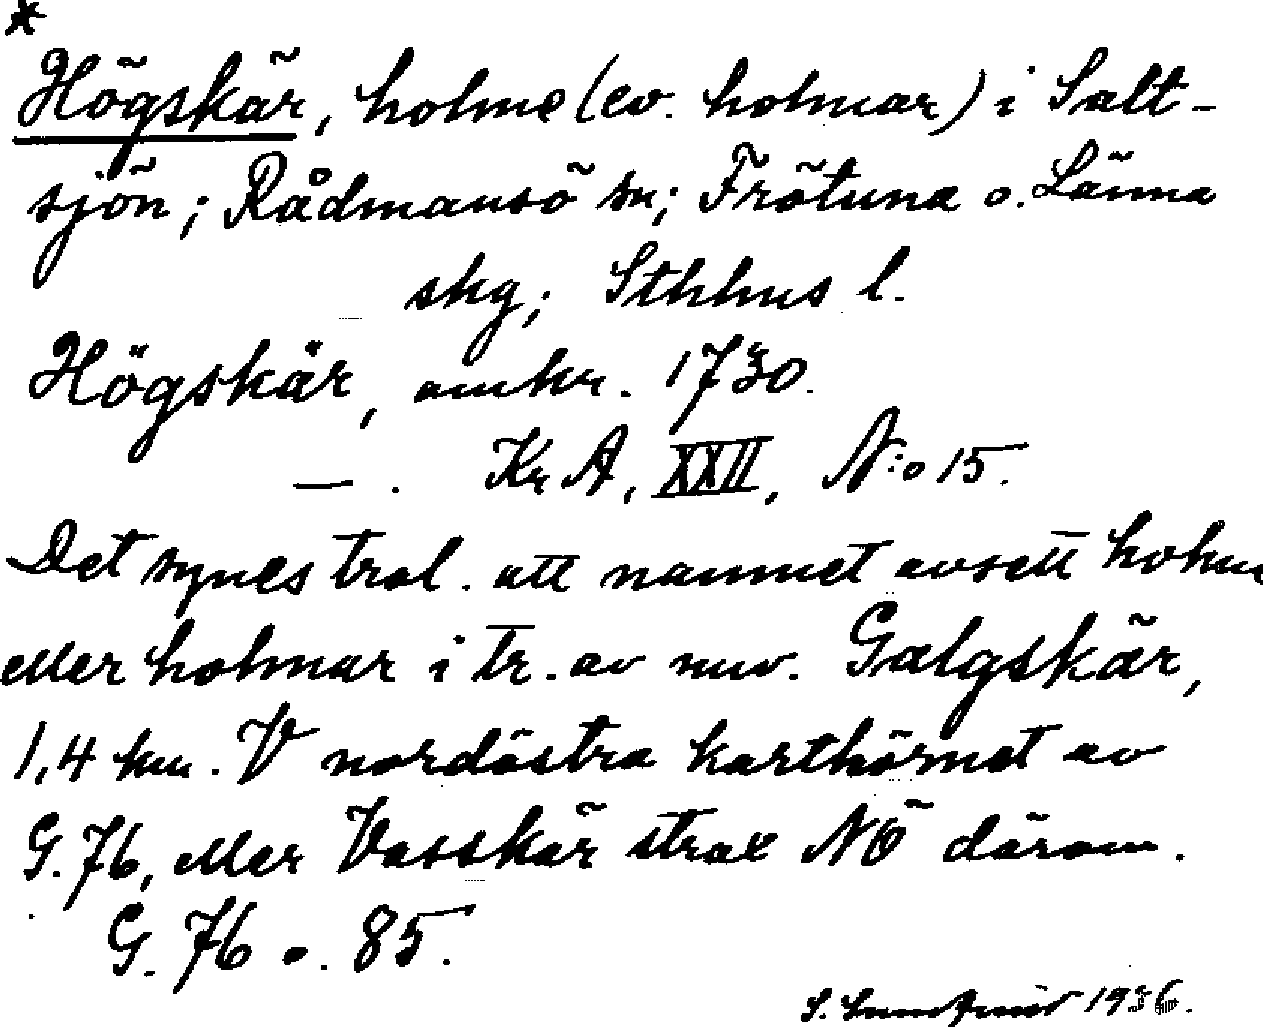 *
Högskär, holme (ev. holmar) i Salt-
sjön; Rådmansö sn; Frötuna o. Länna
skg; Sthlms l.
Högskär, omkr. 1730.
— . Kr A, XXII, N:o 15.
Det synes trol. att namnet avsett holm
eller holmar i tr. av nuv. Galgskär,
1,4 km. V nordöstra karthörnet av
G. 76, eller Vasskär strax NÖ därom.
G. 76 o. 85.
S. 1936.